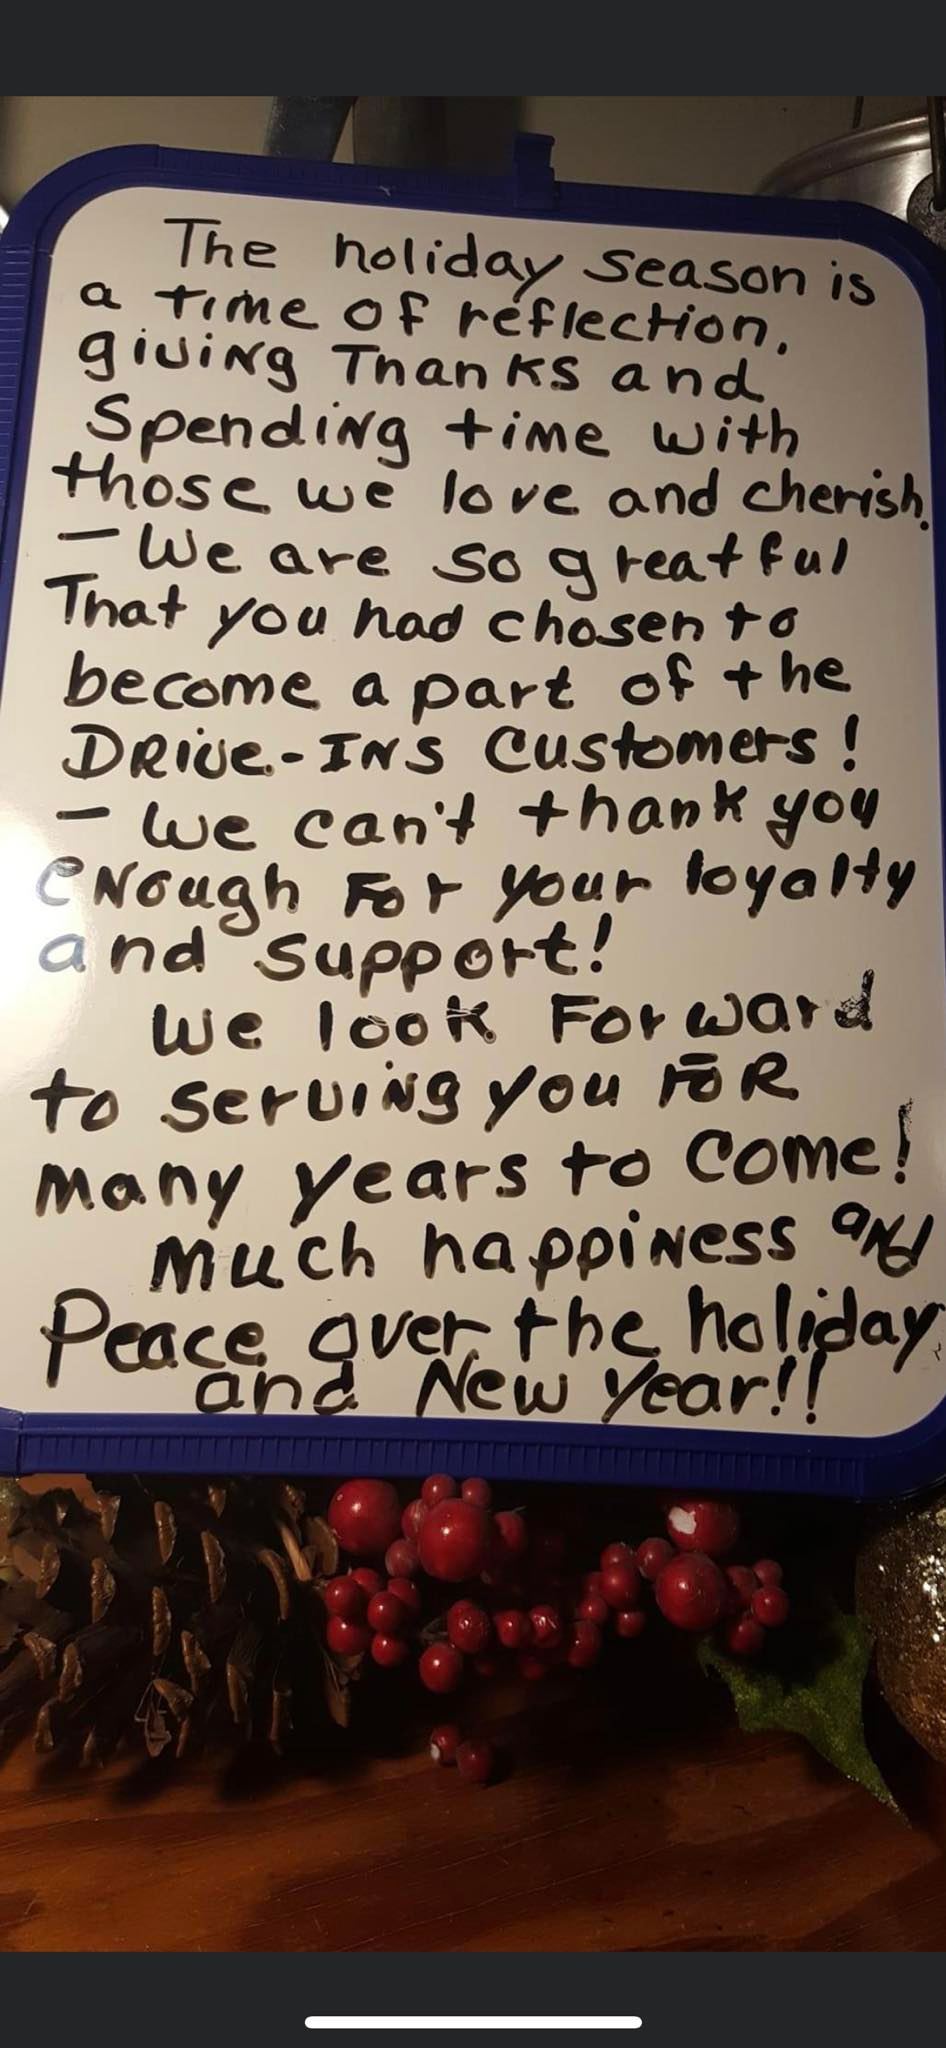 The holiday season is
a time of reflection,
giving Thanks and
Spending time with
those we love and cherish.
- We are so greatful
That you had chosen to
become a part of the
DRive-INS Customers!
- We can't thank you
eNough For your loyalty
and support!
We look Forward
to serving you FOR
many years to Come!
Much happiness and
Peace over the holiday
and New Year!!